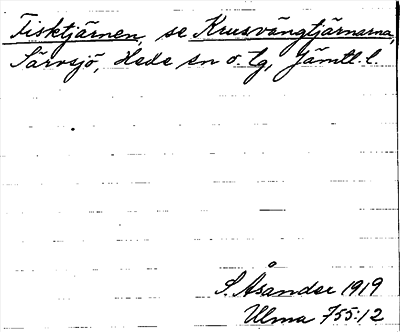 Fisktjärnen, se Krusvångtjärnarna,
Särvsjö, Hede sn o. tg, Jämtl. l.
S. Åsander 1919
Ulma 755:12